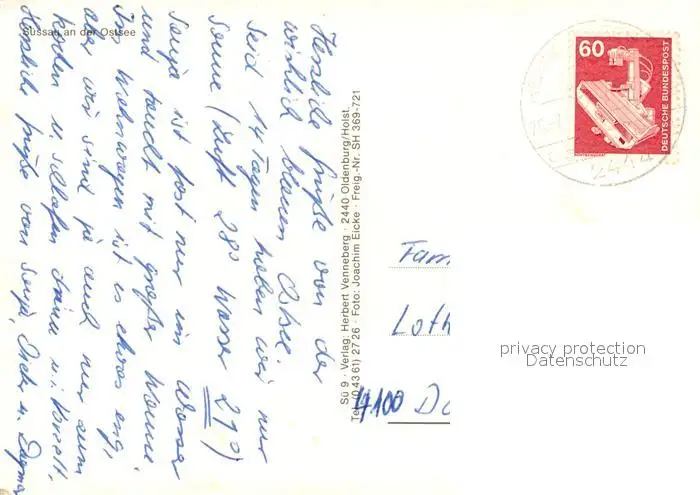 Sussau an der Ostsee
Herzliche Grüße von der
wirklich blauen Ostsee.
Seid 14 Tagen haben wir nur
Sonne (Luft 28° Wasser 21°)
Senja ist fast nur im Wasser
und taucht mit großer Wonne.
Im Wohnwagen ist es etwas eng,
aber wir sind ja auch nur zum
kochen u. schlafen drinn u. korrekt.
Herzliche Grüße von Senja, Dieter u. Dagmar
Sü 9 · Verlag: Herbert Venneberg · 2440 Oldenburg/Holst.
Tel. (0 43 61) 27 26 · Foto: Joachim Eicke · Freig.-Nr. SH 369-721
60
DEUTSCHE BUNDESPOST
Fam
Loth
4100 Du
privacy protection
Datenschutz